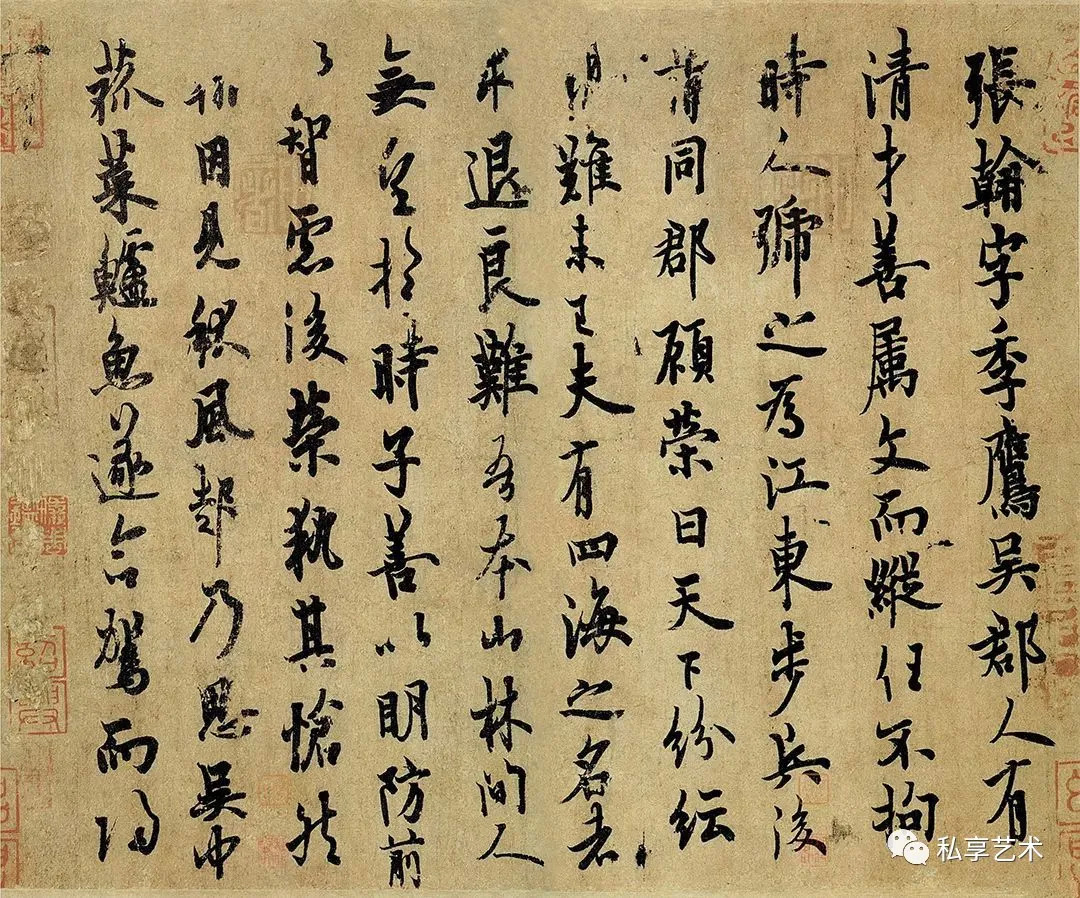 張翰字季鷹吳郡人有
清才善屬文而縱任不拘
時人號之為江東步兵後
謂同郡顧榮曰天下紛紜
難未已夫有四海之名者
求退良難吾本山林間人
無望於時子善以明防前
以智慮後榮執其愴然
因見秋風起乃思吳中
菰菜鱸魚遂命駕而歸
私享艺术